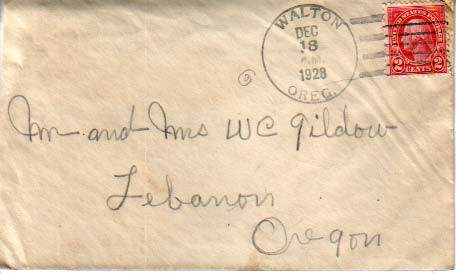 WALTON
DEC
18
1928
OREG.
UNITED STATES POSTAGE
2 CENTS 2
Mr and Mrs WC Gildow
Lebanon
Oregon